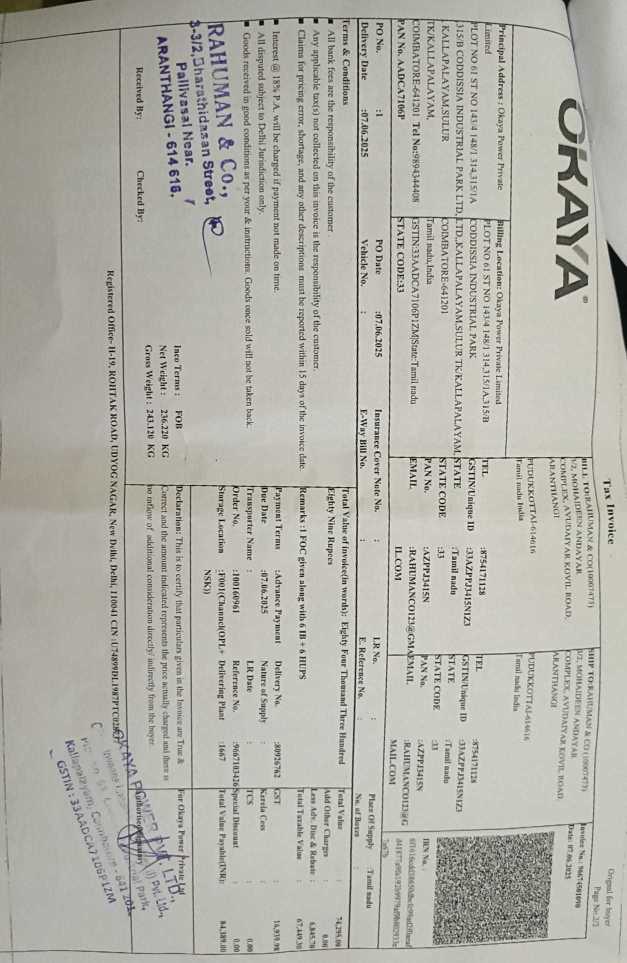 OKAYA
Tax Invoice
Original for buyer
Page No:2/3
Principal Address : Okaya Power Private
Limited
PLOT NO 61 ST NO 143/4 148/1 314,315/1A
315/B CODDISSIA INDUSTRIAL PARK LTD,
KALLAPALAYAM,SULUR
TK/KALLAPALAYAM,
COIMBATORE-641201 Tel No:9894344408
PAN No. AADCA7106P
Billing Location: Okaya Power Private Limited
PLOT NO 61 ST NO 143/4 148/1 314,315/1A,315/B
CODDISSIA INDUSTRIAL PARK
LTD,,KALLAPALAYAM,SULUR TK/KALLAPALAYAM,
COIMBATORE-641201
Tamil nadu,India
GSTIN:33AADCA7106P1ZM|State:Tamil nadu
STATE CODE:33
BILL TO:RAHUMAN & CO(10007473)
1/2, MOHAIDEEN ANDAVAR
COMPLEX, AVUDAIYAR KOVIL ROAD,
ARANTHANGI
PUDUKKOTTAI-614616
Tamil nadu India
TEL :8754171128
GSTIN/Unique ID :33AZPPJ3415N1Z3
STATE :Tamil nadu
STATE CODE :33
PAN No. :AZPPJ3415N
EMAIL :RAHUMANCO123@GMA
IL.COM
SHIP TO:RAHUMAN & CO (10007473)
1/2, MOHAIDEEN ANDAVAR
COMPLEX, AVUDAIYAR KOVIL ROAD,
ARANTHANGI
PUDUKKOTTAI-614616
Tamil nadu India
TEL :8754171128
GSTIN/Unique ID :33AZPPJ3415N1Z3
STATE :Tamil nadu
STATE CODE :33
PAN No. :AZPPJ3415N
EMAIL :RAHUMANCO123@G
MAIL.COM
Invoice No.: 966C4501090
Date: 07.06.2025
IRN No. :
PO No. :1 PO Date :07.06.2025 Insurance Cover Note No. : LR No. : Place Of Supply :Tamil nadu
Delivery Date :07.06.2025 Vehicle No. : E-Way Bill No. : E. Reference No. : No. of Boxes :
Terms & Conditions
■ All bank fees are the responsibility of the customer .
■ Any applicable tax(s) not collected on this invoice is the responsibility of the customer.
■ Claims for pricing error, shortage, and any other descriptions must be reported within 15 days of the invoice date.
■ Interest @ 18% P.A. will be charged if payment not made on time.
■ All disputed subject to Delhi Jurisdiction only.
■ Goods received in good conditions as per your & instructions. Goods once sold will not be taken back.
Total Value of invoice(in words): Eighty Four Thousand Three Hundred
Eighty Nine Rupees
Remarks :1 FOC given along with 6 IB + 6 HUPS
Payment Terms :Advance Payment Delivery No. :80926762
Due Date :07.06.2025 Nature of Supply :
Transporter Name : LR Date :
Order No. :100160961 Reference No. :9667103426
Storage Location :F001(Channel(OPL+ Delivering Plant :1667
NSK))
Total Value : 74,295.08
Add Other Charges : 0.00
Less Adv. Disc & Rebate : 6,845.78
Total Taxable Value : 67,449.30
GST : 16,939.98
Kerala Cess :
TCS : 0.00
Special Discount : 0.00
Total Value Payable(INR): 84,389.00
RAHUMAN & CO.,
3-3/2, Bharathidasan Street,
Pallivasal Near.
ARANTHANGI - 614 616.
Inco Terms : FOB
Net Weight : 236.220 KG
Gross Weight : 243.120 KG
Declaration: This is to certify that particulars given in the Invoice are True &
Correct and the amount indicated represents the price actually charged and there is
no inflow of additional consideration directly/ indirectly from the buyer.
For Okaya Power Private Ltd
Authorised Signatory
OKAYA POWER PVT. LTD.,
GSTIN : 33AADCA7106P1ZM
Received By: Checked By:
Registered Office- H-19, ROHTAK ROAD, UDYOG NAGAR, New Delhi, Delhi, 110041 CIN :